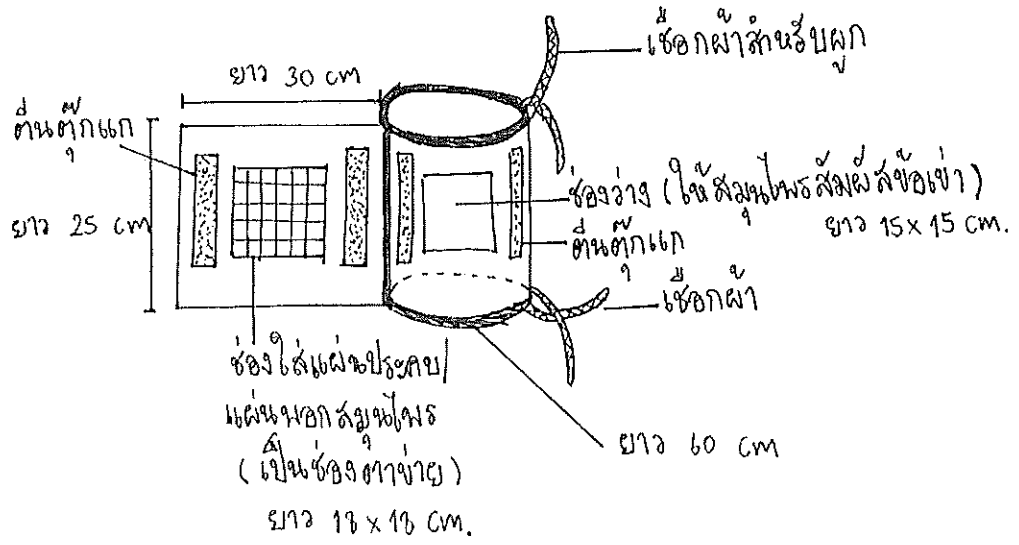 เชือกผ้าสำหรับผูก
ยาว 30 cm
ตีนตุ๊กแก
ช่องว่าง (ให้สมุนไพรสัมผัสข้อเข่า)
ยาว 15x15 cm.
ยาว 25 cm
ตีนตุ๊กแก
เชือกผ้า
ช่องใส่แผ่นประคบ/
แผ่นพอกสมุนไพร
(เป็นช่องตาข่าย)
ยาว 18x18 cm.
ยาว 60 cm